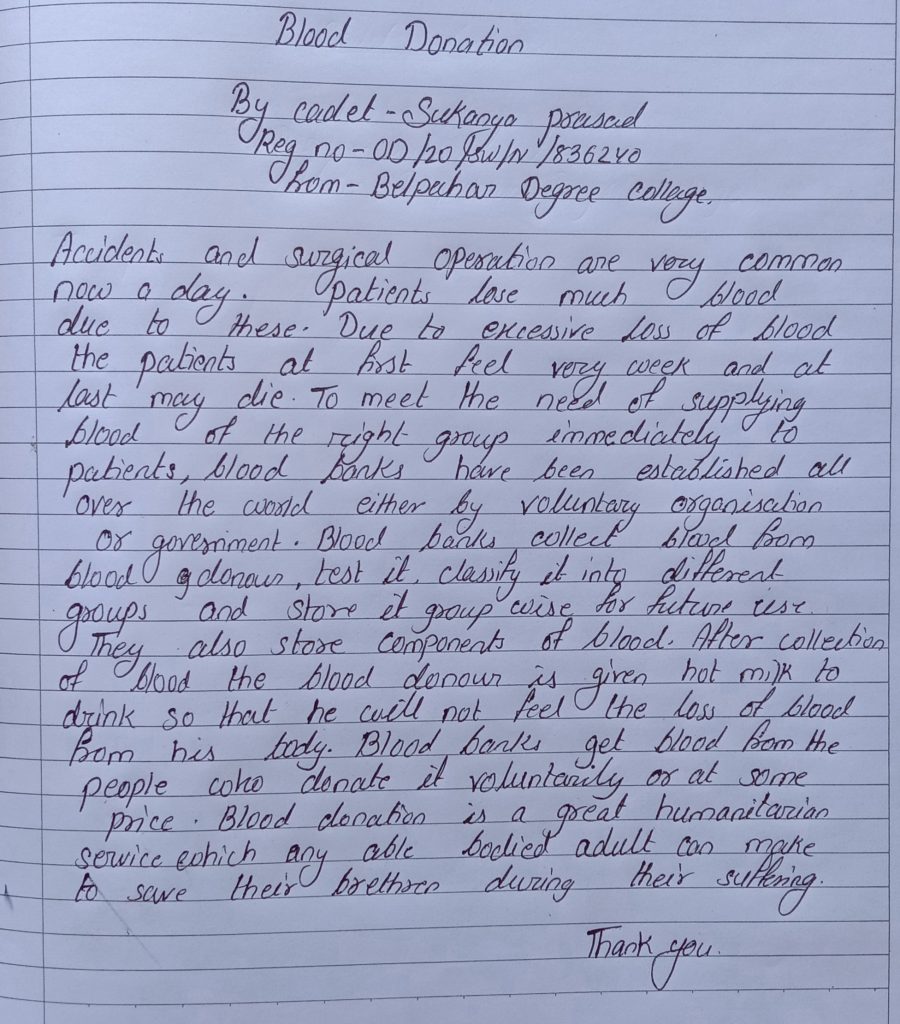 Blood Donation
By cadet - Sukanya prasad
Reg no - OD/20/SW/N/836240
From - Belpahar Degree college.
Accidents and surgical operation are very common
now a day. Patients lose much blood
due to these. Due to excessive loss of blood
the patients at first feel very week and at
last may die. To meet the need of supplying
blood of the right group immediately to
patients, blood banks have been established all
over the world either by voluntary organisation
or government. Blood banks collect blood from
blood donour, test it, classify it into different
groups and store it group wise for future use.
They also store components of blood. After collection
of blood the blood donour is given hot milk to
drink so that he will not feel the loss of blood
from his body. Blood banks get blood from the
people who donate it voluntarily or at some
price. Blood donation is a great humanitarian
service which any able bodied adult can make
to save their brethren during their suffering.
Thank you.